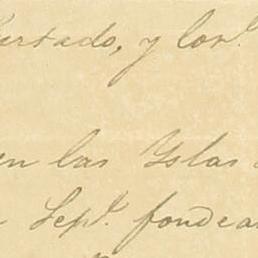 urtado, y Cor.^l
en las Yslas
Sep.^e fondea